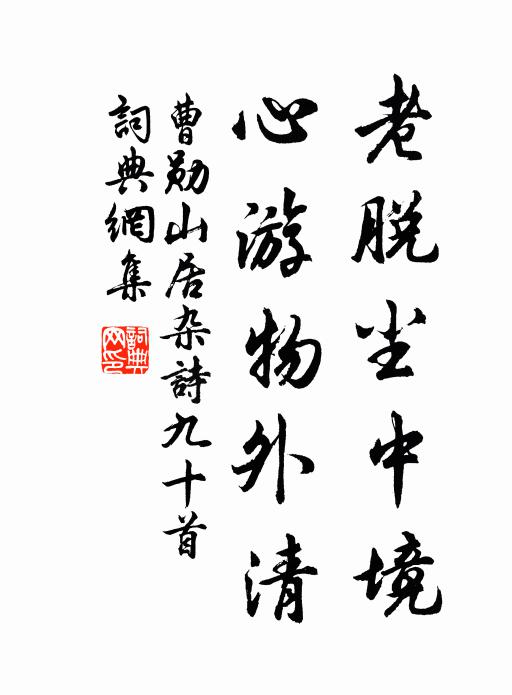 老脱尘中境
心游物外清
曹勋山居杂詩九十首
詞典網集
詞典网印